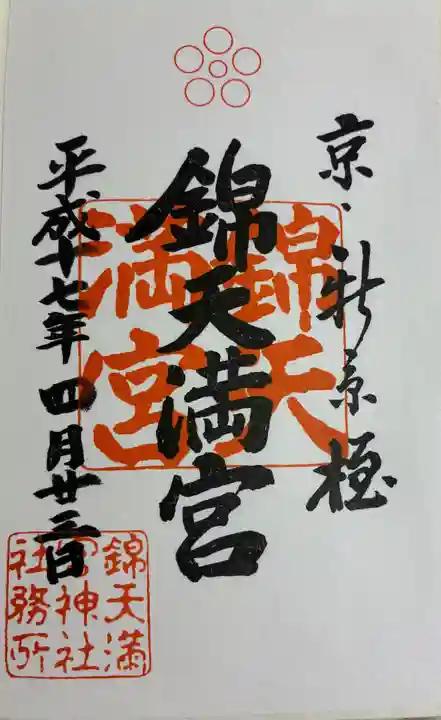 京・新京極
錦天満宮
錦天
満宮
平成十七年四月廿三日
錦天満
宮神社
社務所